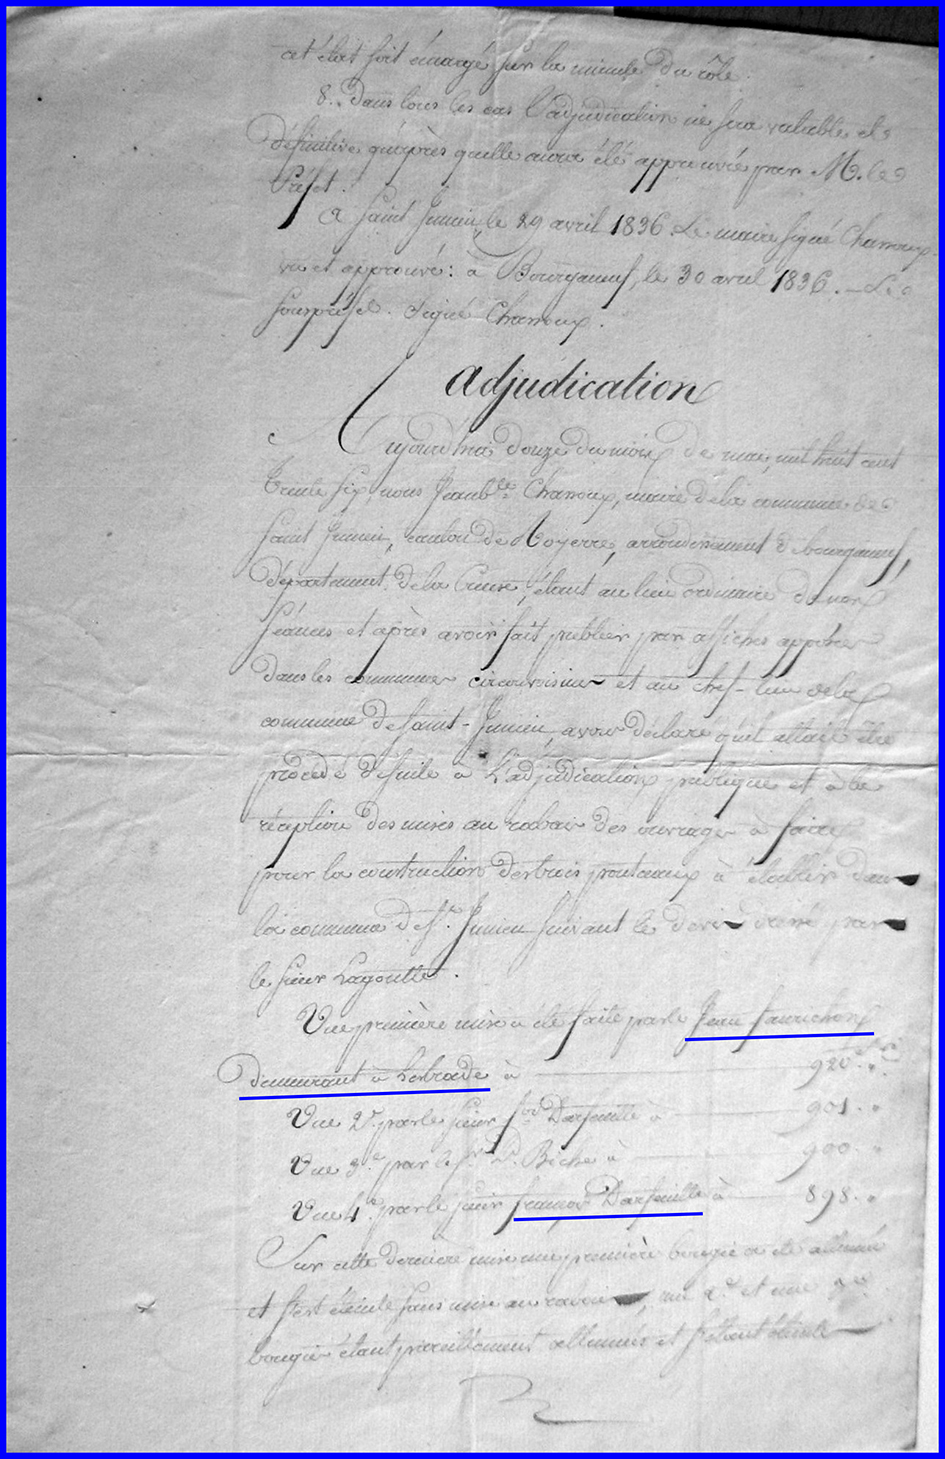 cet état soit émargé sur la minute du rôle.
8.. Dans tous les cas l'adjudication ne sera valable et
définitive qu'après quelle aura été approuvée par M. le
Préfet.
A Saint Junien, le 29 avril 1836. Le maire signé Charroux
vu et approuvé: à Bourganeuf, le 30 avril 1836. – Le
souspréfet. Signé Charroux.
Adjudication
Aujourd'hui douze du mois de mai, mil huit cent
trente six, nous Jean Bte Charroux, maire de la commune de
Saint Junien, canton de Royerre, arrondissement de bourganeuf,
département de la Creuse, étant au lieu ordinaire de nos
séances et après avoir fait publier par affiches apposées
dans les communes circonvoisines et au chef-lieu de la
commune de Saint-Junien, avons déclaré qu'il allait être
procédé de suite à l'adjudication publique et à la
réception des mises au rabais des ouvrages à faire
pour la construction des trois pontceaux à établir dans
la commune de St. Junien suivant le devis dressé par
le sieur Lagoutte.
Une première mise a été faite par le Jean
demeurant à à 920
Une 2e. par le sieur fois Darfeuille à 901. "
Une 3e. par le sr. D. Biche à 900. "
Une 4e. par le sieur françois Darfeuille à 898. "
Sur cette dernière mise une première bougie a été allumée
et s'est éteinte sans mise au rabais, une 2e. et une 3e.
bougies étant pareillement allumées et s'étant éteintes